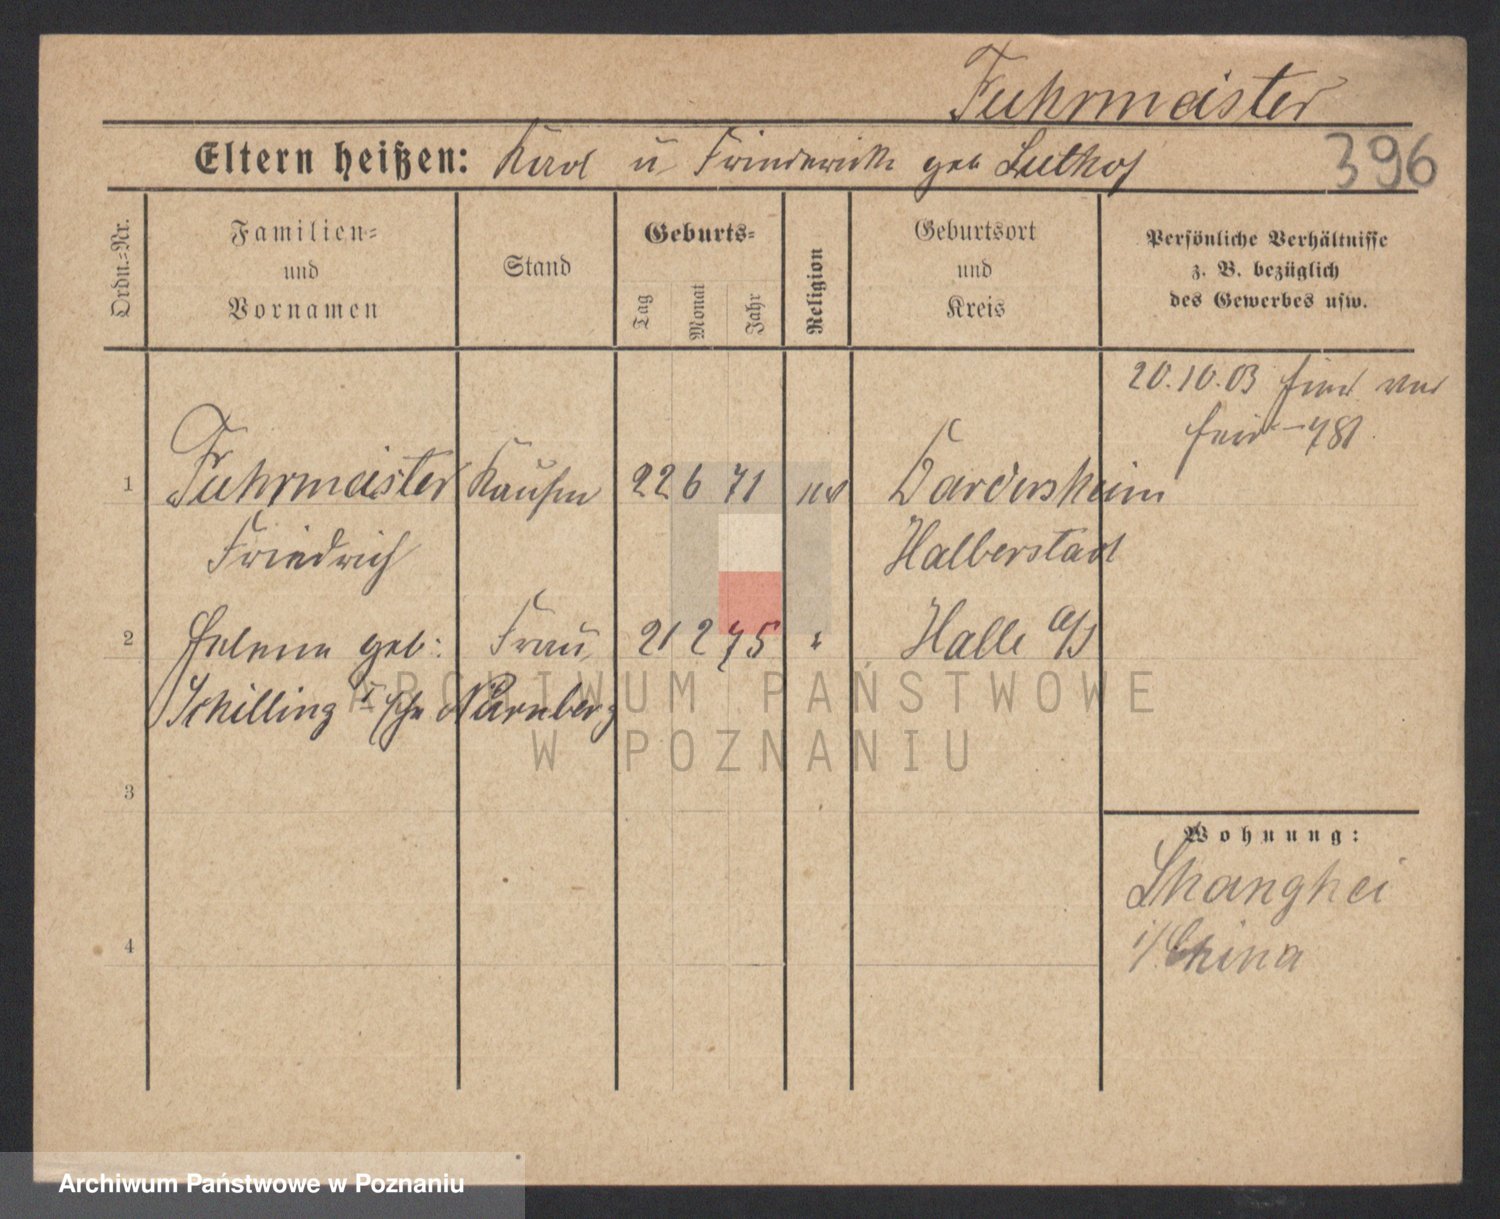 Fuhrmeister
Eltern heißen: Karl u Friederike geb Luthof
396
Ordn.-Nr.
Familien-
und
Vornamen
Stand
Geburts-
Tag
Monat
Jahr
Religion
Geburtsort
und
Kreis
Persönliche Verhältnisse
z. B. bezüglich
des Gewerbes usw.
20.10.03
1 Fuhrmeister Kaufm 22 6 71 ev Dardesheim
Friedrich Halberstadt
2 Helene geb: Frau 21 2 75 " Halle a/S
Schilling Nürnberg
3
4
Wohnung:
Shanghei
i/China
ARCHIWUM PAŃSTWOWE
W POZNANIU
Archiwum Państwowe w Poznaniu